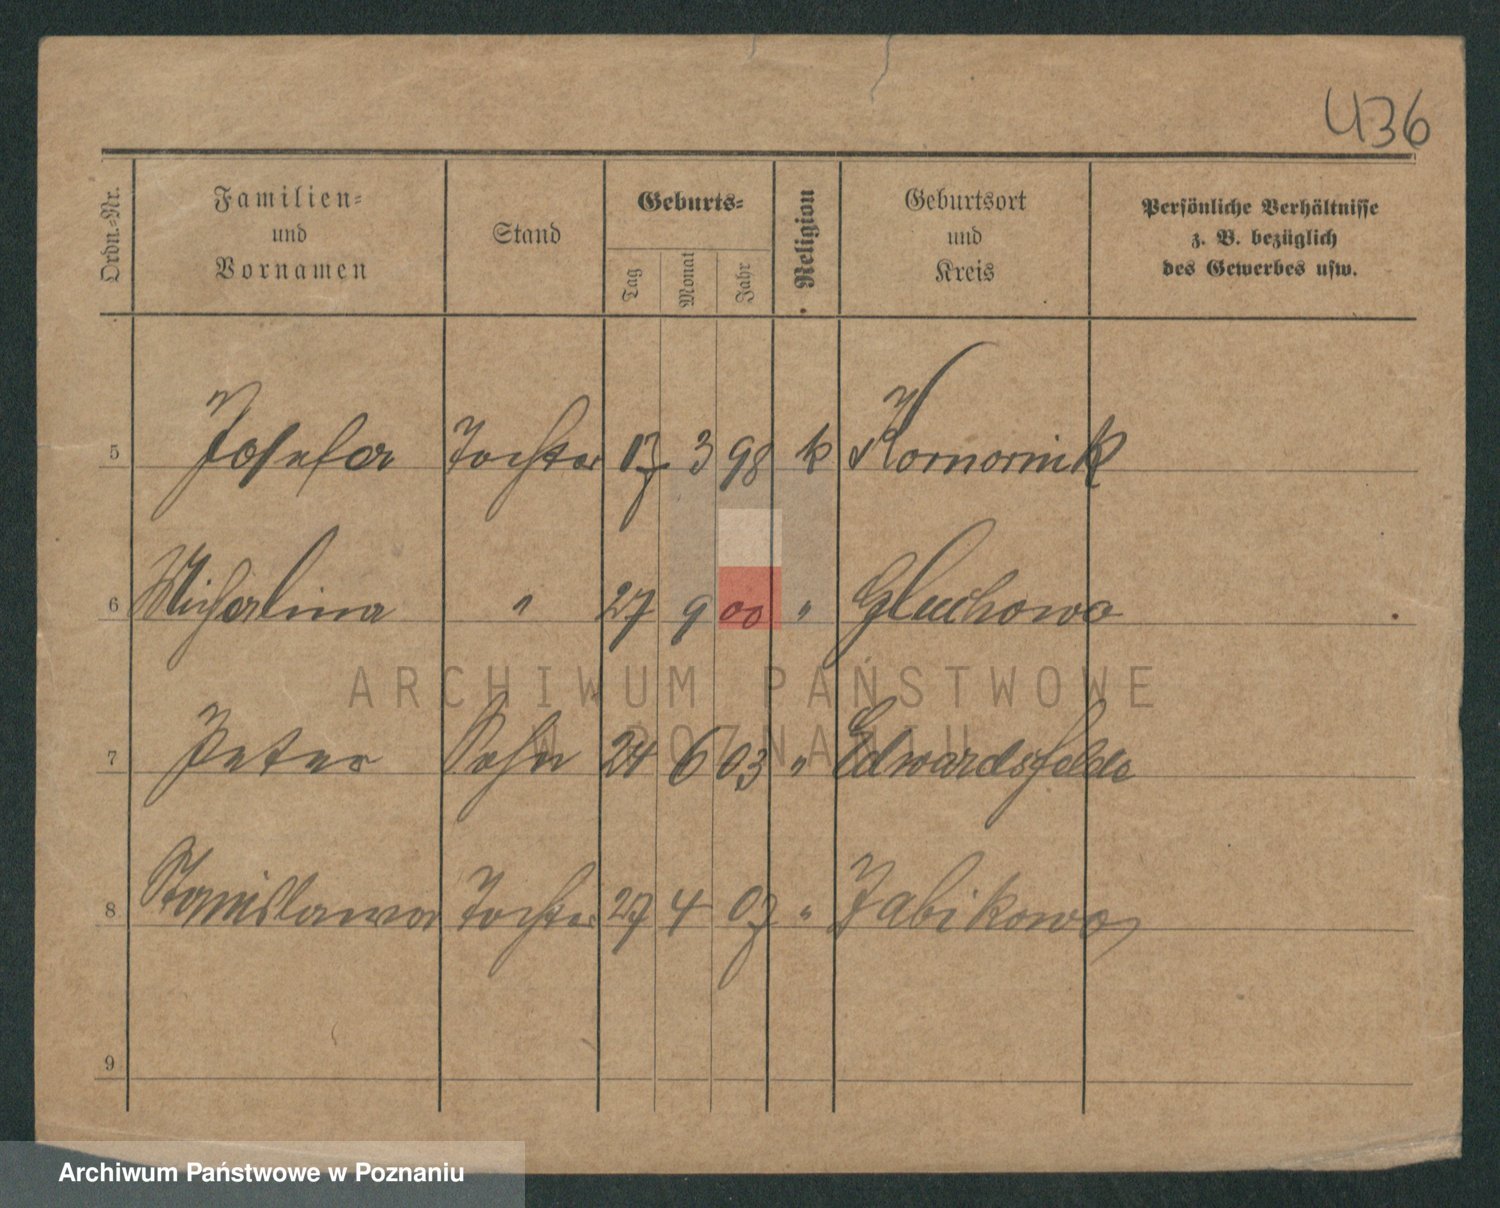 436
Ordn.-Nr.
Familien-
und
Vornamen
Stand
Geburts-
Tag
Monat
Jahr
Religion
Geburtsort
und
Kreis
Persönliche Verhältnisse
z. B. bezüglich
des Gewerbes usw.
5 Josefa Tochter 17 3 98 k Kornornik
6 Michalina " 27 9 00 " Gluchowo
7 Peter Sohn 24 6 03 " Edwardsfelde
8 Stanislawa Tochter 27 4 07 " Zabikowo
9
ARCHIWUM PAŃSTWOWE
W POZNANIU
Archiwum Państwowe w Poznaniu